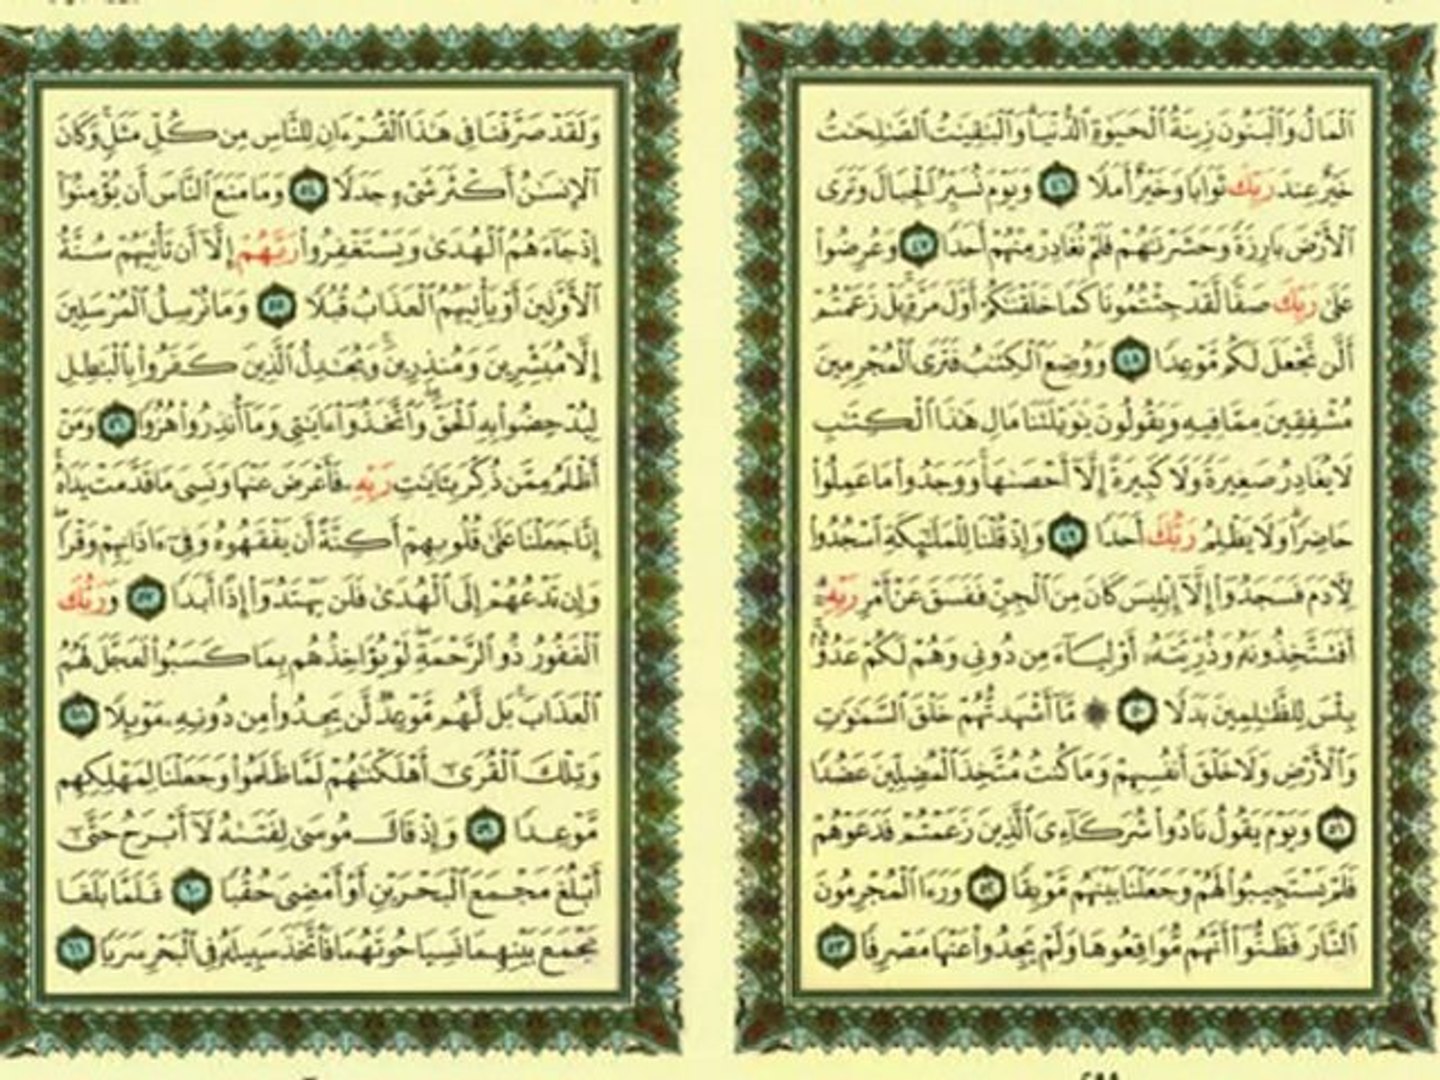 ٱلْمَالُ وَٱلْبَنُونَ زِينَةُ ٱلْحَيَوٰةِ ٱلدُّنْيَا وَٱلْبَٰقِيَٰتُ ٱلصَّٰلِحَٰتُ
خَيْرٌ عِندَ رَبِّكَ ثَوَابًا وَخَيْرٌ أَمَلًا ٤٦ وَيَوْمَ نُسَيِّرُ ٱلْجِبَالَ وَتَرَى
ٱلْأَرْضَ بَارِزَةً وَحَشَرْنَٰهُمْ فَلَمْ نُغَادِرْ مِنْهُمْ أَحَدًا ٤٧ وَعُرِضُوا۟
عَلَىٰ رَبِّكَ صَفًّا لَّقَدْ جِئْتُمُونَا كَمَا خَلَقْنَٰكُمْ أَوَّلَ مَرَّةٍۭ بَلْ زَعَمْتُمْ
أَلَّن نَّجْعَلَ لَكُم مَّوْعِدًا ٤٨ وَوُضِعَ ٱلْكِتَٰبُ فَتَرَى ٱلْمُجْرِمِينَ
مُشْفِقِينَ مِمَّا فِيهِ وَيَقُولُونَ يَٰوَيْلَتَنَا مَالِ هَٰذَا ٱلْكِتَٰبِ
لَا يُغَادِرُ صَغِيرَةً وَلَا كَبِيرَةً إِلَّآ أَحْصَىٰهَا وَوَجَدُوا۟ مَا عَمِلُوا۟
حَاضِرًا وَلَا يَظْلِمُ رَبُّكَ أَحَدًا ٤٩ وَإِذْ قُلْنَا لِلْمَلَٰٓئِكَةِ ٱسْجُدُوا۟
لِءَادَمَ فَسَجَدُوٓا۟ إِلَّآ إِبْلِيسَ كَانَ مِنَ ٱلْجِنِّ فَفَسَقَ عَنْ أَمْرِ رَبِّهِۦٓ
أَفَتَتَّخِذُونَهُۥ وَذُرِّيَّتَهُۥٓ أَوْلِيَآءَ مِن دُونِى وَهُمْ لَكُمْ عَدُوٌّۢ
بِئْسَ لِلظَّٰلِمِينَ بَدَلًا ٥٠ ۞ مَّآ أَشْهَدتُّهُمْ خَلْقَ ٱلسَّمَٰوَٰتِ
وَٱلْأَرْضِ وَلَا خَلْقَ أَنفُسِهِمْ وَمَا كُنتُ مُتَّخِذَ ٱلْمُضِلِّينَ عَضُدًا
٥١ وَيَوْمَ يَقُولُ نَادُوا۟ شُرَكَآءِىَ ٱلَّذِينَ زَعَمْتُمْ فَدَعَوْهُمْ
فَلَمْ يَسْتَجِيبُوا۟ لَهُمْ وَجَعَلْنَا بَيْنَهُم مَّوْبِقًا ٥٢ وَرَءَا ٱلْمُجْرِمُونَ
ٱلنَّارَ فَظَنُّوٓا۟ أَنَّهُم مُّوَاقِعُوهَا وَلَمْ يَجِدُوا۟ عَنْهَا مَصْرِفًا ٥٣
وَلَقَدْ صَرَّفْنَا فِى هَٰذَا ٱلْقُرْءَانِ لِلنَّاسِ مِن كُلِّ مَثَلٍ وَكَانَ
ٱلْإِنسَٰنُ أَكْثَرَ شَىْءٍ جَدَلًا ٥٤ وَمَا مَنَعَ ٱلنَّاسَ أَن يُؤْمِنُوٓا۟
إِذْ جَآءَهُمُ ٱلْهُدَىٰ وَيَسْتَغْفِرُوا۟ رَبَّهُمْ إِلَّآ أَن تَأْتِيَهُمْ سُنَّةُ
ٱلْأَوَّلِينَ أَوْ يَأْتِيَهُمُ ٱلْعَذَابُ قُبُلًا ٥٥ وَمَا نُرْسِلُ ٱلْمُرْسَلِينَ
إِلَّا مُبَشِّرِينَ وَمُنذِرِينَ وَيُجَٰدِلُ ٱلَّذِينَ كَفَرُوا۟ بِٱلْبَٰطِلِ
لِيُدْحِضُوا۟ بِهِ ٱلْحَقَّ وَٱتَّخَذُوٓا۟ ءَايَٰتِى وَمَآ أُنذِرُوا۟ هُزُوًا ٥٦ وَمَنْ
أَظْلَمُ مِمَّن ذُكِّرَ بِـَٔايَٰتِ رَبِّهِۦ فَأَعْرَضَ عَنْهَا وَنَسِىَ مَا قَدَّمَتْ يَدَاهُ
إِنَّا جَعَلْنَا عَلَىٰ قُلُوبِهِمْ أَكِنَّةً أَن يَفْقَهُوهُ وَفِىٓ ءَاذَانِهِمْ وَقْرًا
وَإِن تَدْعُهُمْ إِلَى ٱلْهُدَىٰ فَلَن يَهْتَدُوٓا۟ إِذًا أَبَدًا ٥٧ وَرَبُّكَ
ٱلْغَفُورُ ذُو ٱلرَّحْمَةِ لَوْ يُؤَاخِذُهُم بِمَا كَسَبُوا۟ لَعَجَّلَ لَهُمُ
ٱلْعَذَابَ بَل لَّهُم مَّوْعِدٌ لَّن يَجِدُوا۟ مِن دُونِهِۦ مَوْئِلًا ٥٨
وَتِلْكَ ٱلْقُرَىٰٓ أَهْلَكْنَٰهُمْ لَمَّا ظَلَمُوا۟ وَجَعَلْنَا لِمَهْلِكِهِم
مَّوْعِدًا ٥٩ وَإِذْ قَالَ مُوسَىٰ لِفَتَىٰهُ لَآ أَبْرَحُ حَتَّىٰٓ
أَبْلُغَ مَجْمَعَ ٱلْبَحْرَيْنِ أَوْ أَمْضِىَ حُقُبًا ٦٠ فَلَمَّا بَلَغَا
مَجْمَعَ بَيْنِهِمَا نَسِيَا حُوتَهُمَا فَٱتَّخَذَ سَبِيلَهُۥ فِى ٱلْبَحْرِ سَرَبًا ٦١